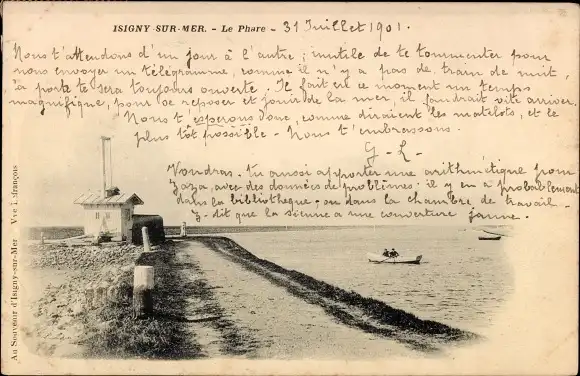 ISIGNY-SUR-MER. - Le Phare - 31 Juillet 1901.
Nous t'attendons d'un jour à l'autre; inutile de te tourmenter pour
nous envoyer un télégramme, comme il n'y a pas de train de nuit,
la porte te sera toujours ouverte. Il fait en ce moment un temps
magnifique, pour se reposer et jouir de la mer, il faudrait vite arriver.
Nous t'espérons donc, comme diraient les matelots, et le
plus tôt possible - Nous t'embrassons.
G - L -
Voudras-tu aussi apporter une arithmétique pour
Zaza, avec des données de problèmes. il y en a probablement
dans la bibliothèque, ou dans la chambre de travail -
Z. dit que la sienne a une couverture jaune.
Au Souvenir d'Isigny-sur-Mer Vve Lefrançois